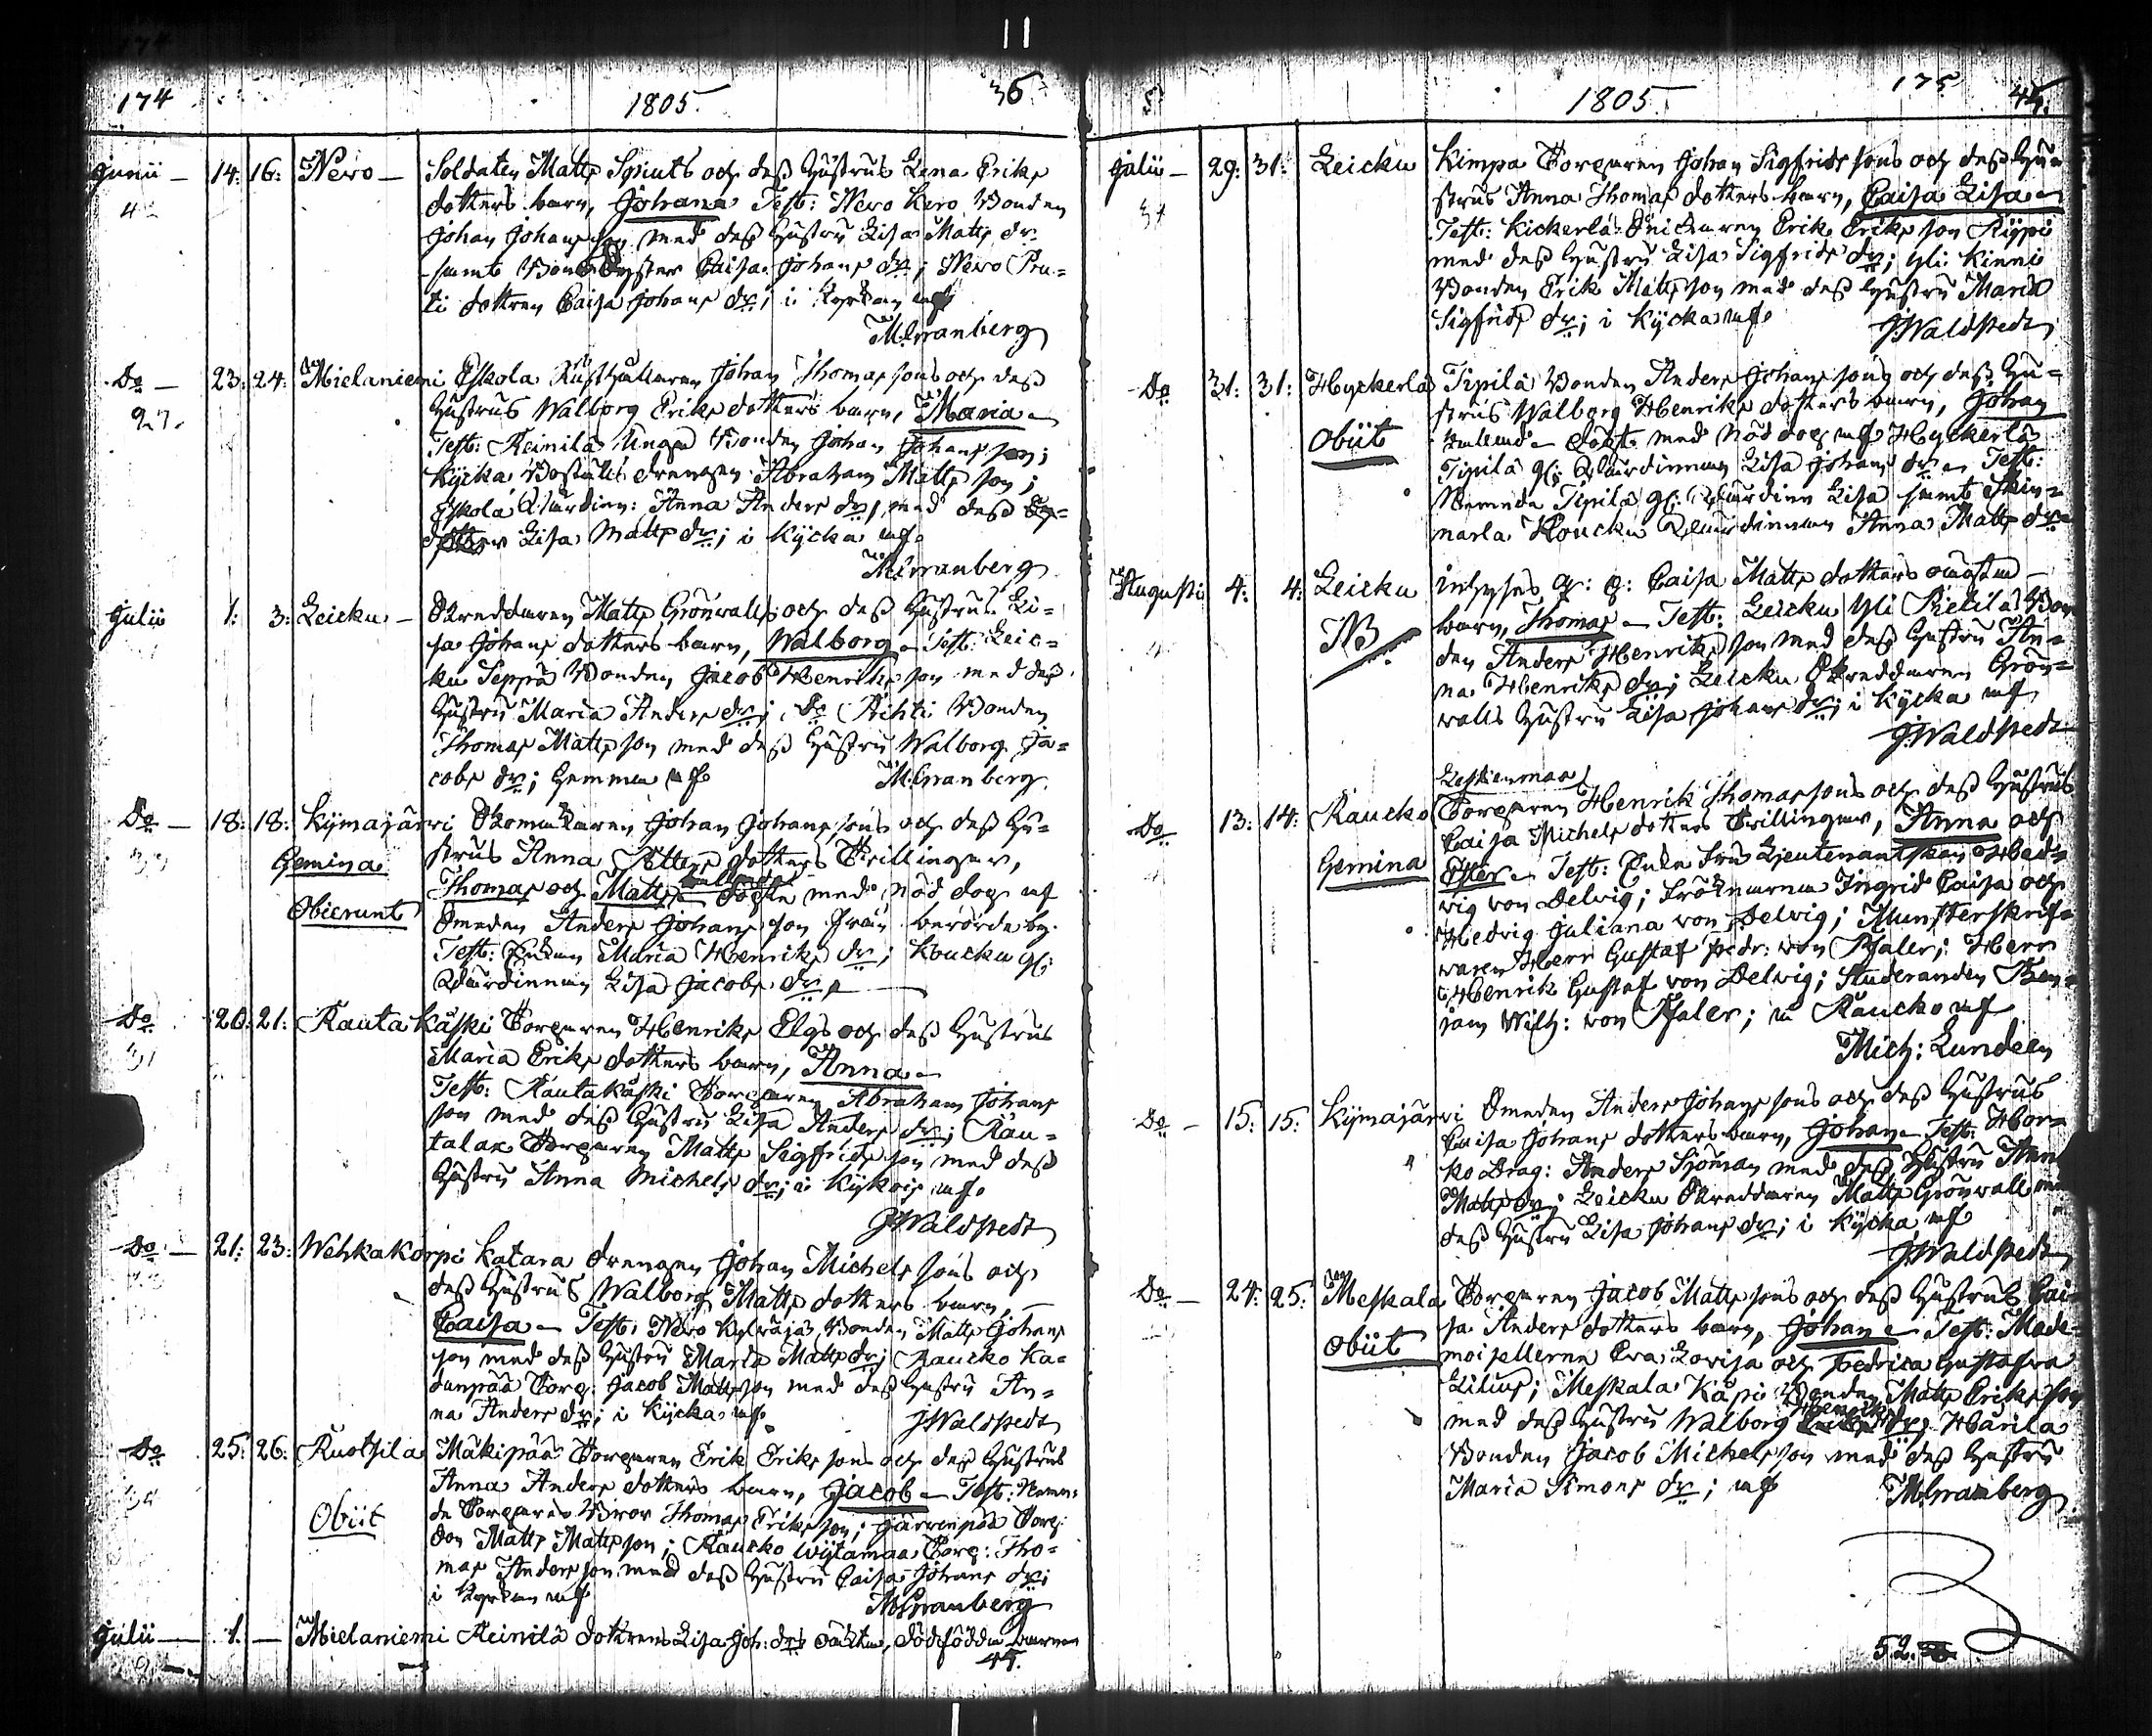 174 1805. 36
Junii — 14: 16: Nero — Soldaten Matts Spints och dess Hustrus Lena Eriks
dotters barn, Johana Test: Nero Kero Bonden
Johan Johansson med dess Hustru Lisa Matts dr.
samt Bond Syster Caisa Johans dr; Nero Pru-
ti dottren Caisa Johans dr; i Kyrkan af
M:Granberg
Do — 23: 24: Mielaniemi Eskola Rusthållaren Johan Thomas sons och dess
27. Hustrus Walborg Eriks dotters barn, Maria —
Test: Reinilä Unga Bonden Johan Johans son;
Kycka Boställs drengen Abraham Matts son;
Eskola Wärdin: Anna Anders dr, med dess
dotter Lisa Matts dr; i Kycka af
M:Granberg
Julii 1: 3: Leicku — Skreddaren Matts Grönwalls och dess Hustrus Li-
sa Johans dotters barn, Walborg — Test: Leic-
ku Seppä Bonden Jacob Henriks son med dess
Hustru Maria Anders dr; Do Äihti Bonden
Thomas Matts son med dess Hustru Walborg Ja-
cobs dr; hemma af M:Granberg
Do — 18: 18: Kymajärwi Skomakaren Johan Johans sons och dess Hu-
Gemina strus Anna Petters dotters Twillingar,
Thomas och Matts kallade Döpte med nöd dop af
Obierunt Smeden Anders Johans son från berörde by.
Test: Enkan Maria Henriks dr; Koucku gl:
Wärdinnan Lisa Jacobs dr,
Do 20: 21: Rautakåski Torparen Henriks Elgs och dess Hustrus
31 Maria Eriks dotters barn, Anna —
Test: Rautakåski Torparen Abraham Johans
son med dess Hustru Lisa Anders dr; Rau-
talax Torparen Matts Sigfrids son med dess
Hustru Anna Michels dr; i Kykois af
J Waldstedt
Do — 21: 23: Wehkakorpi Katara drengen Johan Michels sons och
dess Hustrus Walborg Matts dotters barn, —
Caisa — Test: Nero Kylräjä Bonden Matts Johans
son med dess Hustru Maria Matts dr; Raucko Ka-
danpää Torp: Jacob Matts son med dess Hustru An-
na Anders dr; i Kycka af J Waldstedt
Do 25: 26: Ruotsila Mäkipää Torparen Erik Eriks sons och dess Hustrus
Anna Anders dotters barn, Jacob — Test: Nemn-
Obiit de Torparens Bror Thomas Eriks son; Järvenpää Torp:
son Matts Matts son; Raucko Wijtamaa Torp: Tho-
mas Anders son med dess Hustru Caisa Johans dr;
i Kyrkan af M:Granberg
Julii — 1. — Mielaniemi Reinilä dottrens Lisa Joh: drs oäkta, dödfödda barn
44.
1805 175 44.
Julii — 29: 31: Leicku Kimpa Torparen Johan Sigfrids sons och dess Hu-
strus Anna Thomas dotters barn, Caisa Lisa —
Test: Kickerlä Snickaren Erik Eriks son Rypi
med dess Hustru Lisa Sigfrids dr; Yli Kinni
Bonden Erik Matts son med dess Hustru Maria
Sigfrids dr; i Kycka af J Waldstedt
Do 31: 31: Hyckerlä Tipilä Bonden Anders Johans sons och dess Hu-
strus Walborg Henriks dotters barn, Johan
Obiit kallad — döpt med nöd dop af Hyckerlä
Tipilä gl: Wärdinnan Lisa Johans dr — Test:
Nemnda Tipilä gl: Wärdinn Lisa samt Skin-
narla Koucku Wärdinnan Anna Matts dr
Augusti 4: 4: Leicku Inhyses q: p: Caisa Matts dotters oäckta —
NB barn, Thomas — Test: Leicku Yli Rietilä Bon
den Anders Henriks son med dess Hustru An-
na Henriks dr; Leicku Skreddaren Grön-
walls Hustru Lisa Johans dr; i Kycka af
J Waldstedt
Leskenmaa
Do 13: 14: Raucko Torparen Henrik Thomas sons och dess Hustrus
Caisa Michels dotters Twillingar, Anna och
Gemina Ester — Test: Enke Fru Lieutenantskan Hed-
wig von Delwig; Fröknarna Ingrid Caisa och
Hedvig Juliana von Delvig; Munsterskrif-
waren Herr Gustaf Fredr: von Pfaler; Herr
Henrik Gustaf von Delvig; Studeranden Ben-
jam Wilh: von Pfaler; i Raucko af
Mich: Lundeen
Do — 15: 15: Kymajärwi Smeden Anders Johans sons och dess Hustrus
Caisa Johans dotters barn, Johan — Test: Hor-
ko Drag: Anders Sjöman med dess Hustru Anna
Matts dr; Leicku Skreddaren Matts Grönwall med
dess Hustru Lisa Johans dr; i Kycka af
J Waldstedt
Do — 24: 25: Meskala Torparen Jacob Matts sons och dess Hustrus Cai-
sa Anders dotters barn, Johan — Test: Made-
Obiit moisellerna Eva Lovisa och Fredrica Gustafva
Lilius; Meskala Käpi Bonden Matts Eriks son
med dess Hustru Walborg Henriks dr; Harila
Bonden Jacob Michels son med dess Hustru
Maria Simons dr; af M:Granberg
52.